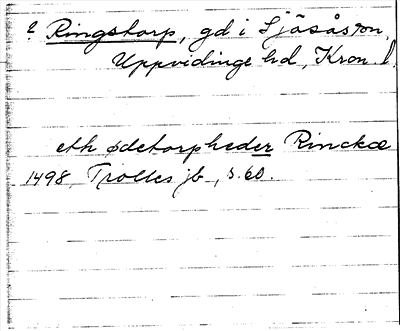 ? Ringstorp, gd i Sjösås sn,
Uppvidinge hd, Kron. l.
eth ødetorp heder Rinckæ
1498, Trolles jb, s. 60.